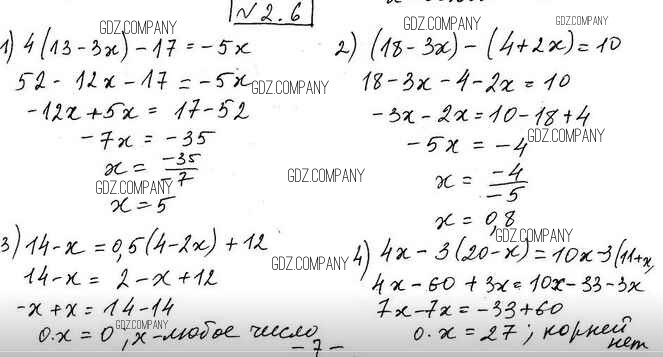 №2.6
GDZ.COMPANY
GDZ.COMPANY
1) 4(13-3x)-17=-5x
52-12x-17=-5x
GDZ.COMPANY
-12x+5x=17-52
-7x=-35
x=-35/-7
GDZ.COMPANY
x=5
2) (18-3x)-(4+2x)=10
18-3x-4-2x=10
-3x-2x=10-18+4
-5x=-4
GDZ.COMPANY
x=-4/-5
GDZ.COMPANY
x=0,8
GDZ.COMPANY
3) 14-x=0,5(4-2x)+12
GDZ.COMPANY
14-x=2-x+12
-x+x=14-14
GDZ.COMPANY
0.x=0, x-любое число
4) 4x-3(20-x)=10x-3(11+x,
4x-60+3x=10x-33-3x
7x-7x=-33+60
0.x=27; корней
нет
-7-